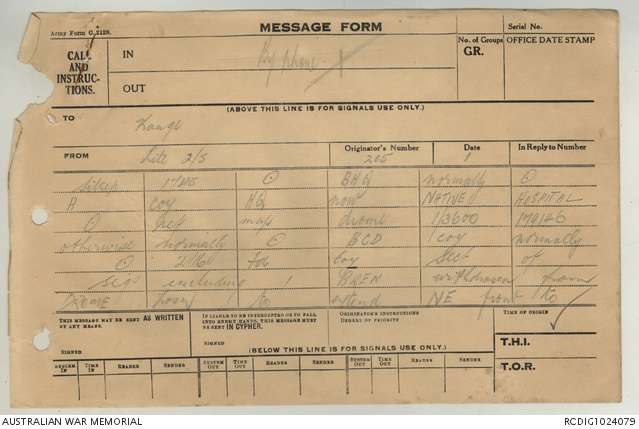 Army Form C.2128.
MESSAGE FORM
Serial No.
CALL AND INSTRUCTIONS.
IN
By phone
No. of Groups GR.
OFFICE DATE STAMP
OUT
(ABOVE THIS LINE IS FOR SIGNALS USE ONLY.)
TO Kanga
FROM 2/5
Originator's Number 205
Date 1
In Reply to Number
sitrep BHQ normally
A coy HQ now NATIVE HOSPITAL
ref map drome 1/3600 170126
otherwise normally BCD coy normally
coy sect of
sigs including 1 BREN withdrawn from
DROME NE front to
THIS MESSAGE MAY BE SENT AS WRITTEN BY ANY MEANS.
SIGNED
IF LIABLE TO BE INTERCEPTED OR TO FALL INTO ENEMY HANDS, THIS MESSAGE MUST BE SENT IN CYPHER.
SIGNED
ORIGINATOR'S INSTRUCTIONS DEGREE OF PRIORITY
TIME OF ORIGIN
T.H.I.
T.O.R.
(BELOW THIS LINE IS FOR SIGNALS USE ONLY.)
SYSTEM IN TIME IN READER SENDER SYSTEM OUT TIME OUT READER SENDER SYSTEM OUT TIME OUT READER SENDER
AUSTRALIAN WAR MEMORIAL
RCDIG1024079